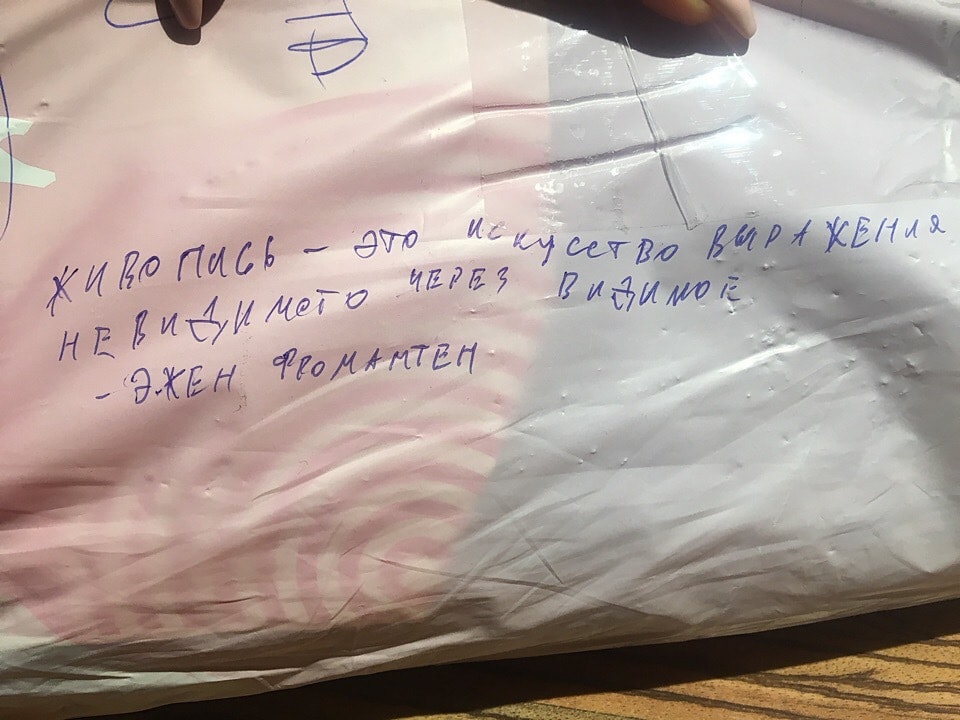 ЖИВОПИСЬ – ЭТО ИСКУССТВО ВЫРАЖЕНИЯ
НЕВИДИМОГО ЧЕРЕЗ ВИДИМОЕ
- ЭЖЕН ФРОМАНТЕН